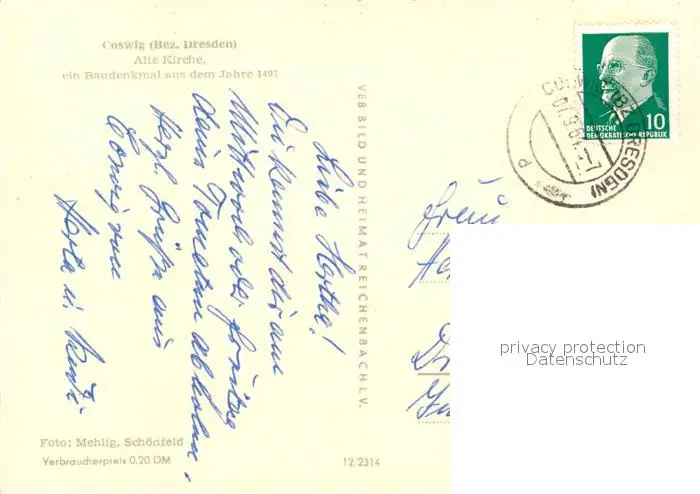 Coswig (Bez. Dresden)
Alte Kirche,
ein Baudenkmal aus dem Jahre 1497
Liebe Hertha!
Du kannst dir am
Mittwoch oder Freitag
deine Tomaten abholen.
Herzl. Grüße aus
Coswig von
Herta u.
VEB BILD UND HEIMAT REICHENBACH i. V.
COSWIG (BZ. DRESDEN)
DEUTSCHE
DEMOKRATISCHE REPUBLIK
10
Frau
privacy protection
Datenschutz
Foto: Mehlig, Schönfeld
Verbraucherpreis 0.20 DM
12 2314